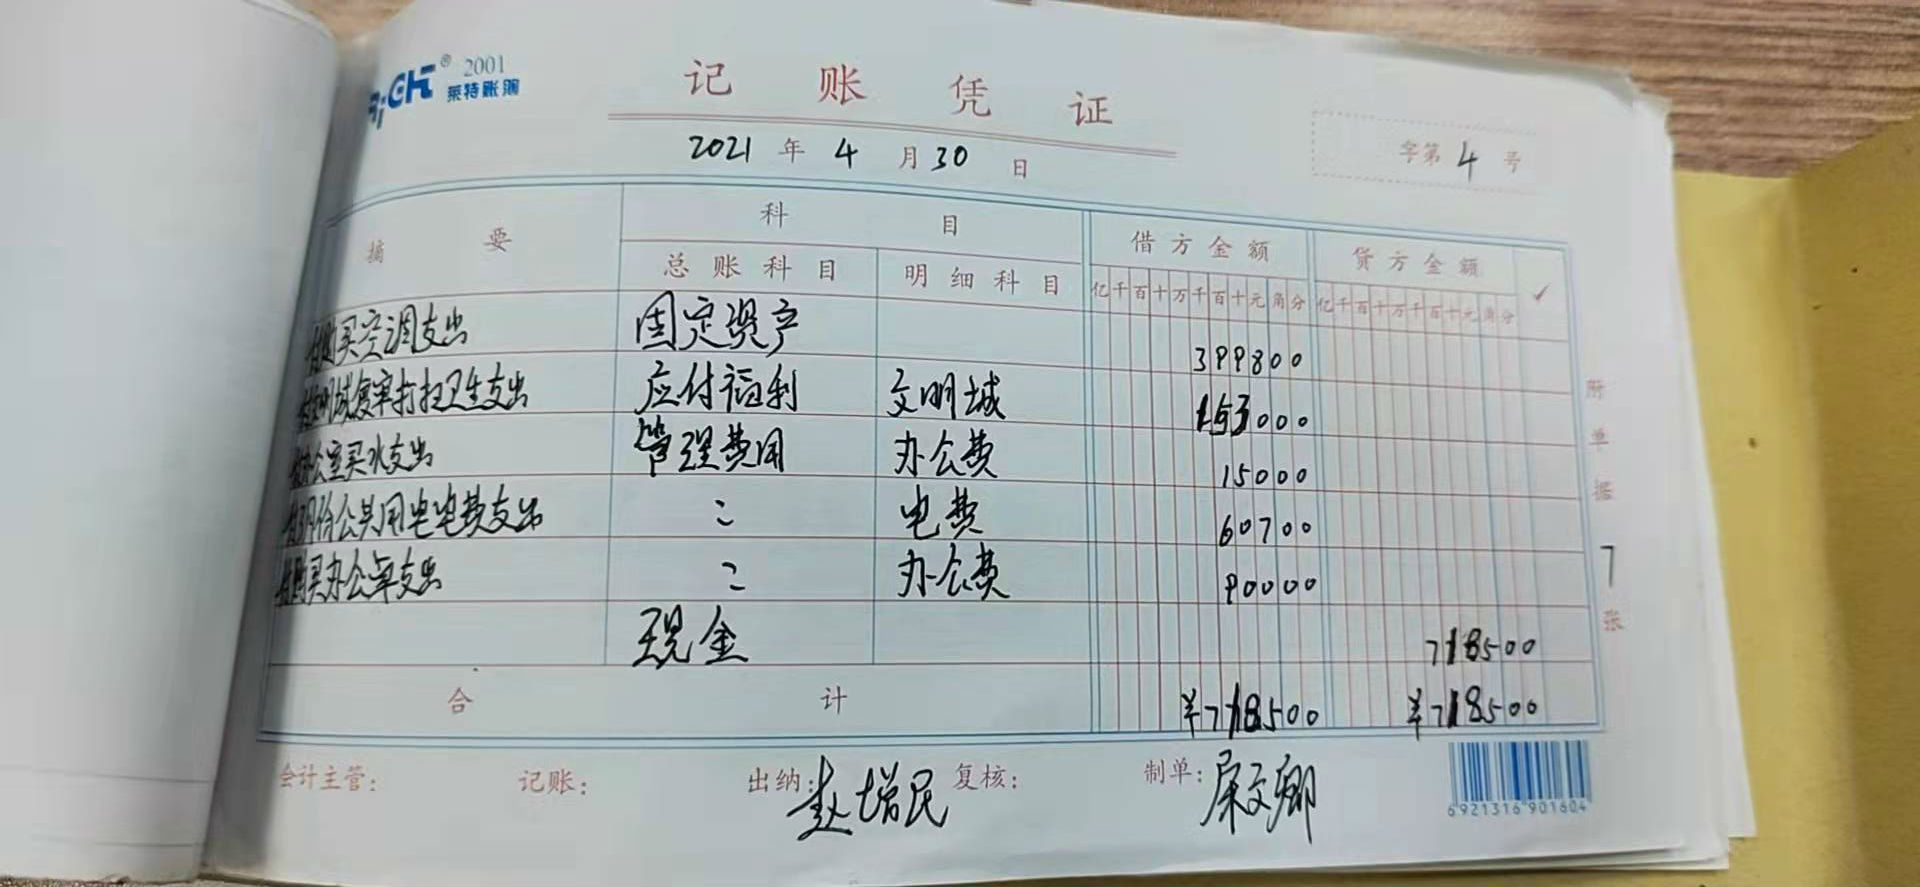 RiGHT® 2001
莱特账簿
记账凭证
2021年4月30日
字第4号
摘要 科目 借方金额 贷方金额 ✓
总账科目 明细科目 亿千百十万千百十元角分 亿千百十万千百十元角分
付购买空调支出 固定资产 399800
付文明城复审打扫卫生支出 应付福利 文明城 153000
付办公室买水支出 管理费用 办公费 15000
付3月份公共用电电费支出 〃 电费 60700
付购买办公桌支出 〃 办公费 90000
现金 718500
合计 ¥718500 ¥718500
附单据7张
会计主管: 记账: 出纳:赵增民 复核: 制单:屈文卿
6921316901604